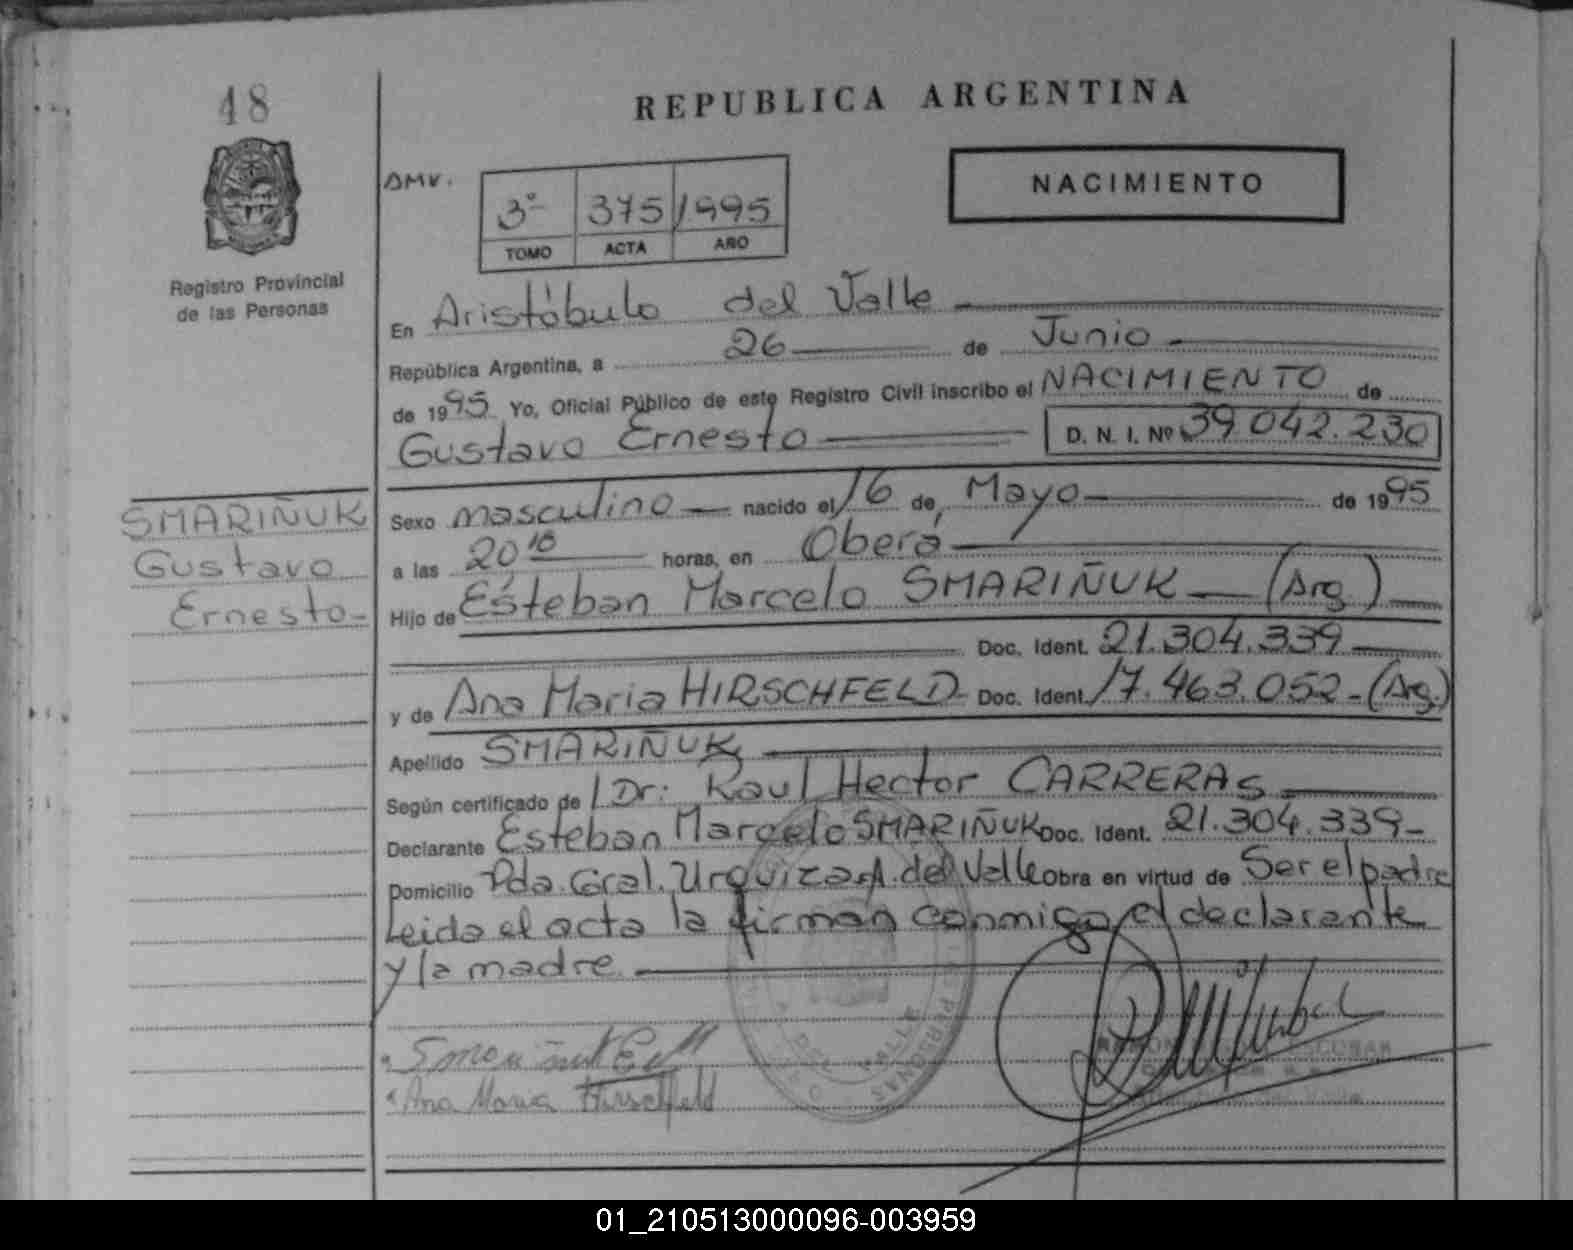 48
REPUBLICA ARGENTINA
Registro Provincial
de las Personas
DMV.
3º 375 1995
TOMO ACTA AÑO
NACIMIENTO
En Aristóbulo del Valle
República Argentina, a 26 de Junio
de 1995 Yo, Oficial Público de este Registro Civil inscribo el NACIMIENTO de
Gustavo Ernesto D. N. I. Nº 39.042.230
SMARIÑUK
Gustavo
Ernesto
Sexo masculino nacido el 16 de Mayo de 1995
a las 20 10 horas, en Oberá
Hijo de Esteban Marcelo SMARIÑUK (Arg.)
Doc. Ident. 21.304.339
y de Ana Maria HIRSCHFELD Doc. Ident. 17.463.052 - (Arg.)
Apellido SMARIÑUK
Según certificado de Dr: Raul Hector CARRERAS
Declarante Esteban Marcelo SMARIÑUK Doc. Ident. 21.304.339
Domicilio Pda. Gral. Urquiza A. del Valle obra en virtud de Ser el padre
Leida el acta la firman conmigo el declarante
y la madre
Ana Maria Hirschfeld
DEL VALLE
PERSONAS
01_210513000096-003959